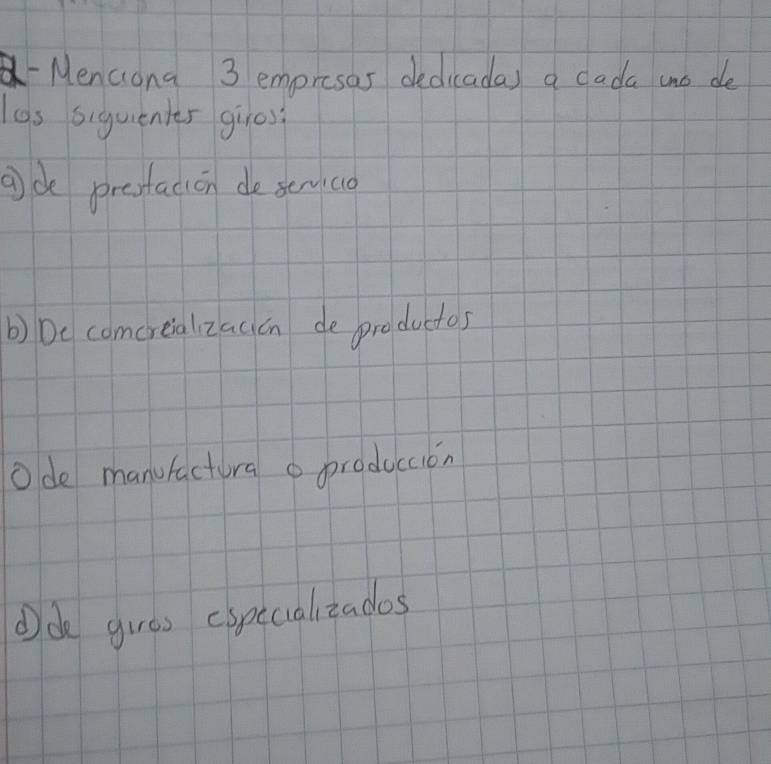 2- Menciona 3 empresas dedicadas a cada uno de
los siguientes giros:
a) de prestación de servicio
b) De comcreialización de productos
c) de manufactura o producción
d) de giros especializados